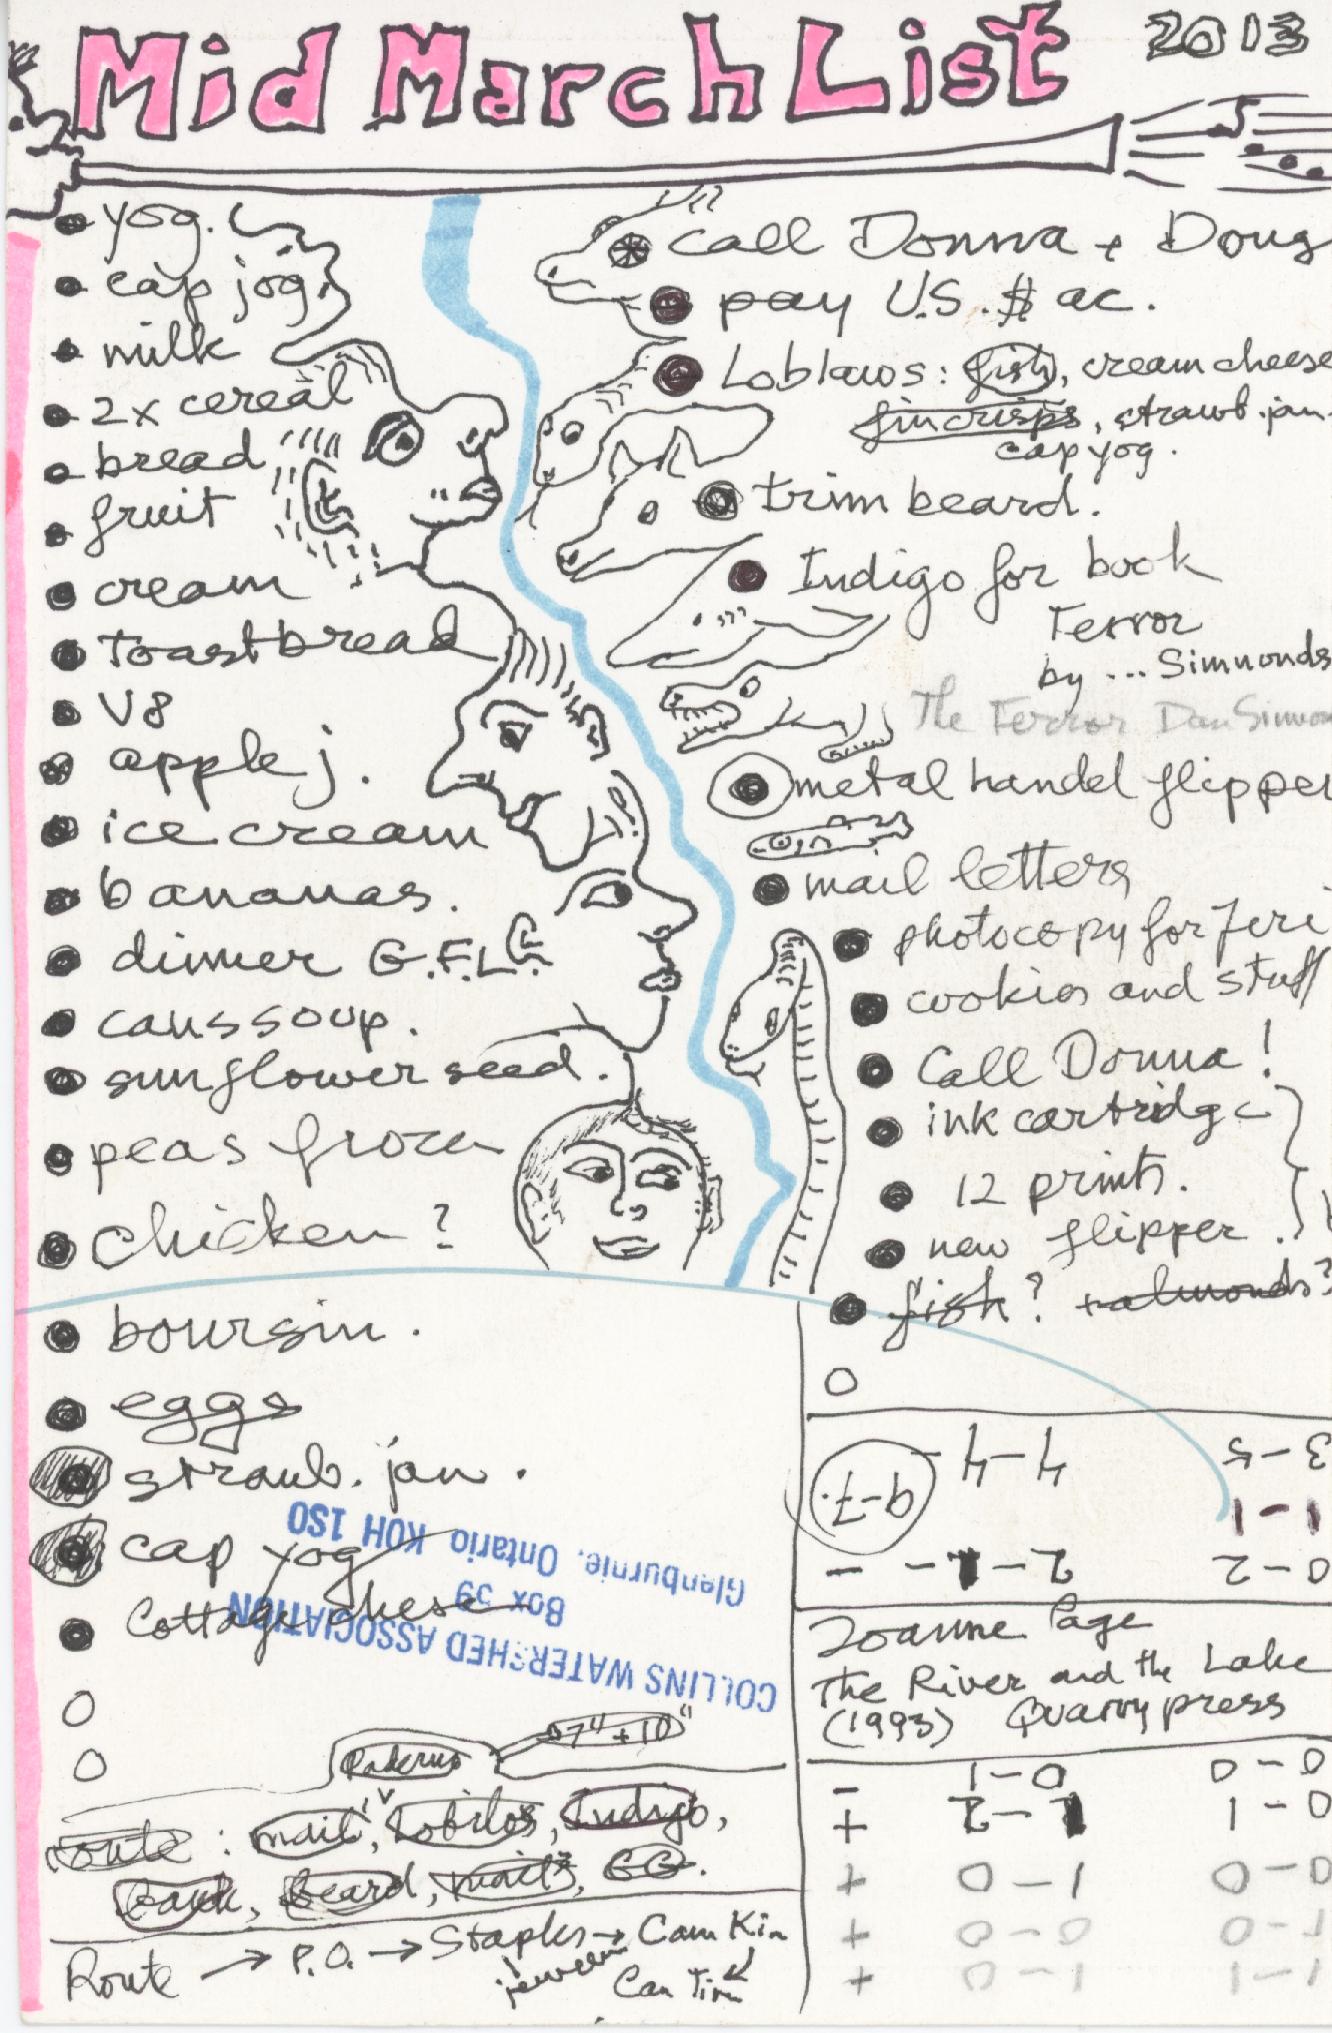 Mid March List 2013
yog.
cap jog
milk
2x cereal
bread
fruit
cream
Toast bread
V8
apple j.
ice cream
bananas.
dinner G.F.L.
cans soup.
sunflower seed.
peas frozen
chicken ?
boursin.
eggs
strawb. jam.
cap yog
Cottage chese
call Donna + Doug
pay U.S. $ ac.
Loblaws: fish, cream cheese
fin crisps, strawb. jam.
cap yog.
trim beard.
Indigo for book
Terror
by ... Simmonds
The Terror Dan Simmon
metal handel flipper
mail letters
photocopy for Jeri
cookies and stuff
Call Donna!
ink cartridge
12 prints.
new flipper.
fish? + almonds?
COLLINS WATERSHED ASSOCIATION
Box 39
Glenburnie, Ontario K0H 1S0
7" + 10"
route: mail, Loblos, Indigo,
bank, beard, mail, GG.
Route → P.O. → Staples → Cam Kin
Can Tire
3-5 4-4 9-7.
1-1
0-2 2-1
Joanne Page
The River and the Lake
(1993) Quarry press
0-0 0-1 -
0-1 2-2 +
0-0 1-0 +
1-0 0-0 +
1-1 1-0 +